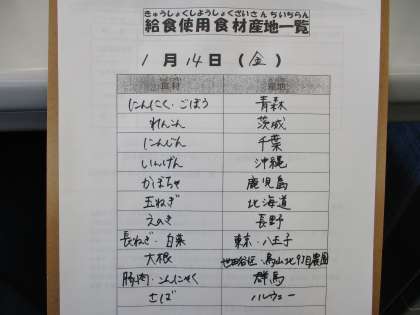 きゅうしょくしようしょくざいさんちいちらん
給食使用食材産地一覧
1月14日(金)
食材 産地
にんにく・ごぼう 青森
れんこん 茨城
にんじん 千葉
いんげん 沖縄
かぼちゃ 鹿児島
玉ねぎ 北海道
えのき 長野
長ねぎ・白菜 東京・八王子
大根 世田谷区・烏山北9丁目農園
豚肉・こんにゃく 群馬
さば ノルウェー